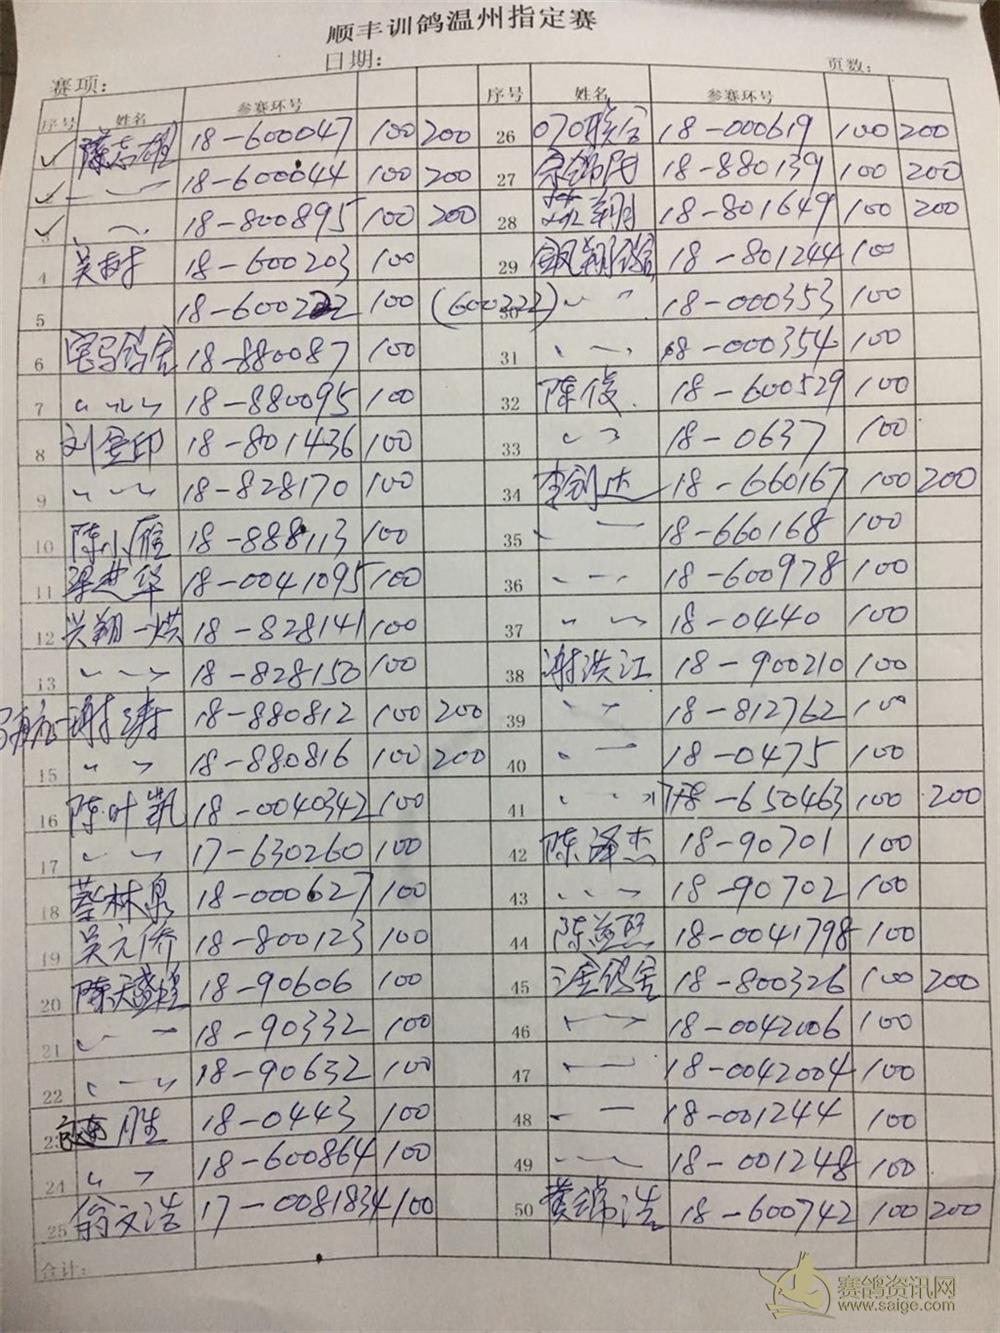 顺丰训鸽温州指定赛
赛项： 日期： 页数：
序号 姓名 参赛环号 序号 姓名 参赛环号
陈志雄 18-600047 100 200 26 070联合 18-000619 100 200
〃 18-600044 100 200 27 18-880139 100 200
3 〃 18-800895 100 200 28 18-801649 100 200
4 吴树 18-600203 100 29 凤翔鸽舍 18-801244 100
5 18-600222 100 (600222) 30 〃 〃 18-000353 100
6 宝马鸽舍 18-880087 100 31 〃 〃 18-000354 100
7 〃 〃 18-880095 100 32 陈俊 18-600529 100
8 刘金印 18-801436 100 33 〃 〃 18-0637 100
9 〃 〃 18-828170 100 34 李剑达 18-660167 100 200
10 陈小雁 18-888113 100 35 〃 〃 18-660168 100
11 梁进华 18-0041095 100 36 〃 〃 18-600978 100
12 兴翔一烘 18-828141 100 37 〃 〃 18-0440 100
13 〃 〃 18-828150 100 38 谢洪江 18-900210 100
谢涛 18-880812 100 200 39 〃 〃 18-812762 100
15 〃 〃 18-880816 100 200 40 〃 〃 18-0475 100
16 陈叶凯 18-0040342 100 41 〃 〃 18-650463 100 200
17 〃 〃 17-630260 100 42 陈泽杰 18-90701 100
18 蔡林泉 18-000627 100 43 〃 〃 18-90702 100
19 吴元侨 18-800123 100 44 陈益熙 18-0041798 100
20 陈天盛 18-90606 100 45 鸽舍 18-800326 100 200
21 〃 〃 18-90332 100 46 〃 〃 18-0042006 100
22 〃 〃 18-90632 100 47 〃 〃 18-0042004 100
23 胜 18-0443 100 48 〃 〃 18-001244 100
24 〃 〃 18-600864 100 49 〃 〃 18-001248 100
25 翁文浩 17-0081834 100 50 黄瑞浩 18-600742 100 200
合计：
赛鸽资讯网
www.saige.com